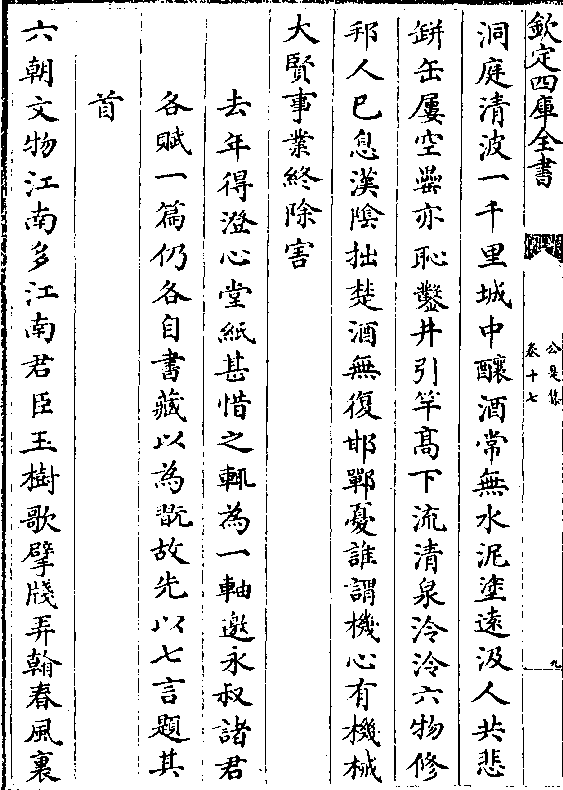 欽定四庫全書
公是集
卷十七
九
洞庭清波一千里城中釀酒常無水泥塗逺汲人共悲
缾缶屢空罍亦恥鑿井引竿髙下流清泉泠泠六物修
邦人已息漢隂拙楚酒無復邯鄲憂誰謂機心有機械
大賢事業終除害
去年得澄心堂紙甚惜之輒為一軸邀永叔諸君
各賦一篇仍各自書藏以為翫故先以七言題其
首
六朝文物江南多江南君臣玉樹歌擘牋弄翰春風裏